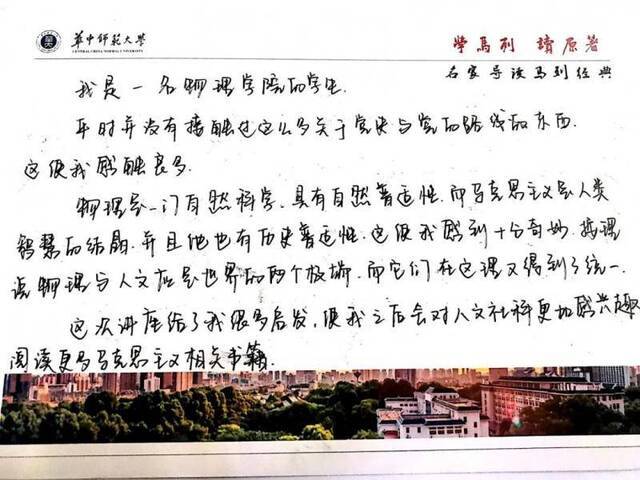 華中師範大學
CENTRAL CHINA NORMAL UNIVERSITY
學馬列 讀原著
名家导读马列经典
我是一名物理学院的学生.
平时并没有接触过这么多关于党史与党的路线的东西.
这使我感触良多.
物理是一门自然科学,具有自然普适性.而马克思主义是人类
智慧的结晶.并且他也有历史普适性.这使我感到十分奇妙.按理
说物理与人文应是世界的两个极端.而它们在这里又得到了统一.
这次讲座给了我很多启发,使我之后会对人文社科更加感兴趣
阅读更多马克思主义相关书籍.